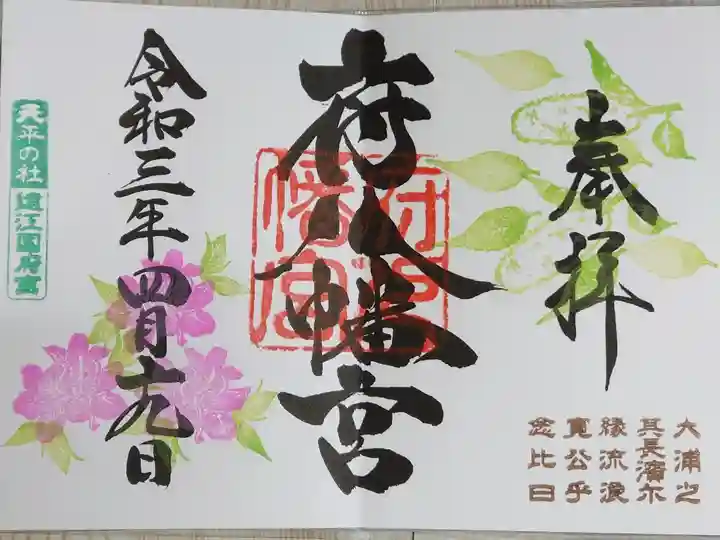 奉拝
大浦之
其長濱尓
縁流浪
寛公乎
念比日
府八幡宮
府八幡宮
令和三年四月十九日
天平の社
遠江国府宮